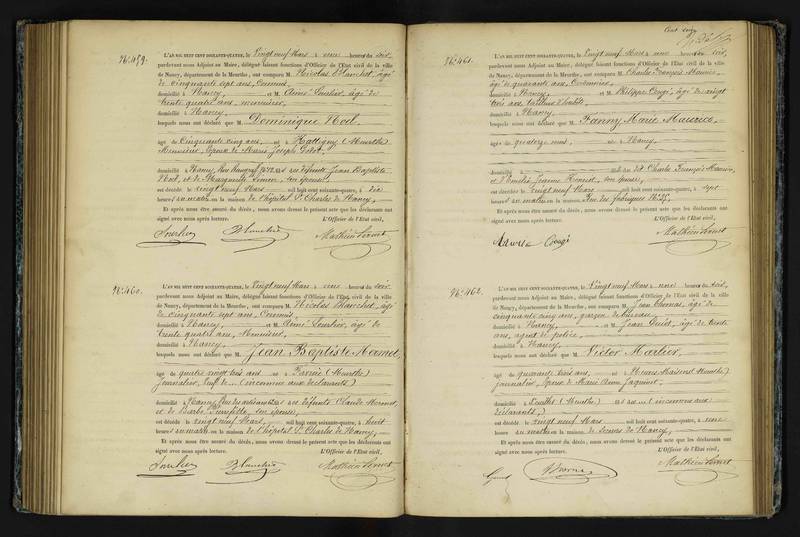 N.º 459.
L'AN MIL HUIT CENT SOIXANTE-QUATRE, le Vingt neuf Mars à une heure du soir,
pardevant nous Adjoint au Maire, délégué faisant fonctions d'Officier de l'État civil de la ville
de Nancy, département de la Meurthe, ont comparu M. Nicolas Blanchet, âgé
de cinquante sept ans, Commis,
domicilié à Nancy, et M. Aimé Lourlier, âgé de
trente quatre ans, menuisier,
domicilié à Nancy,
lesquels nous ont déclaré que M. Dominique Noel,
âgé de Cinquante cinq ans, né à Hattigny (Meurthe)
Menuisier, époux de Marie Joseph
domicilié à Nancy, Rue fils des défunts Jean Baptiste
Noel, et de Marguerite Simon, son épouse,
est décédé le vingt neuf Mars mil huit cent soixante-quatre, à dix
heures du matin en la maison de l'hôpital St Charles de Nancy,
Et après nous être assuré du décès, nous avons dressé le présent acte que les déclarants ont
signé avec nous après lecture. L'Officier de l'Etat civil,
N.º 460.
L'AN MIL HUIT CENT SOIXANTE-QUATRE, le Vingt neuf Mars à une heure du soir
pardevant nous Adjoint au Maire, délégué faisant fonctions d'Officier de l'État civil de la ville
de Nancy, département de la Meurthe, ont comparu M. Nicolas Blanchet, âgé
de cinquante sept ans, Commis
domicilié à Nancy, et M. Aimé Lourlier, âgé de
trente quatre ans, Menuisier,
domicilié à Nancy,
lesquels nous ont déclaré que M. Jean Baptiste Mermet,
âgé de quatre vingt trois ans né à (Meurthe)
journalier, Veuf de... (inconnu aux déclarants)
domicilié à Nancy, Rue des artisans fils des défunts Claude Mermet,
et de Barbe son épouse,
est décédé le vingt neuf Mars, mil huit cent soixante-quatre, à huit
heures du matin en la maison de l'hôpital St Charles de Nancy,
Et après nous être assuré du décès, nous avons dressé le présent acte que les déclarants ont
signé avec nous après lecture. L'Officier de l'Etat civil,
Cent cinq
N.º 461.
L'AN MIL HUIT CENT SOIXANTE-QUATRE, le Vingt neuf Mars à une heure du soir,
pardevant nous Adjoint au Maire, délégué faisant fonctions d'Officier de l'État civil de la ville
de Nancy, département de la Meurthe, ont comparu M. Charles François Maurice,
âgé de quarante ans, Cordonnier,
domicilié à Nancy, et M. Philippe Cougé, âgé de vingt
trois ans, tailleur d'habits,
domicilié à Nancy
lesquels nous ont déclaré que M. Fanny Marie Maurice,
âgée de quatorze mois, née à Nancy,
domicilié à fille dudit Charles François Maurice,
et d'Emilie Jeanne son épouse,
est décédée le vingt neuf Mars mil huit cent soixante-quatre, à sept
heures du matin en la maison Rue des fabriques N.º 25,
Et après nous être assuré du décès, nous avons dressé le présent acte que les déclarants ont
signé avec nous après lecture. L'Officier de l'Etat civil,
Maurice Cougé
N.º 462.
L'AN MIL HUIT CENT SOIXANTE-QUATRE, le Vingt neuf Mars à une heure du soir,
pardevant nous Adjoint au Maire, délégué faisant fonctions d'Officier de l'État civil de la ville
de Nancy, département de la Meurthe, ont comparu M. Jean Thomas, âgé de
cinquante cinq ans, garçon de bureau,
domicilié à Nancy, et M. Jean âgé de trente
ans, agent de police,
domicilié à Nancy
lesquels nous ont déclaré que M. Victor Marlier,
âgé de quarante trois ans, né à (Meurthe)
journalier, époux de Marie Anne Jaquinet,
domicilié à (Meurthe) fils de... (inconnus aux
déclarants,)
est décédé le vingt neuf Mars, mil huit cent soixante-quatre, à une
heure du matin en la maison de Secours de Nancy,
Et après nous être assuré du décès, nous avons dressé le présent acte que les déclarants ont
signé avec nous après lecture. L'Officier de l'Etat civil,